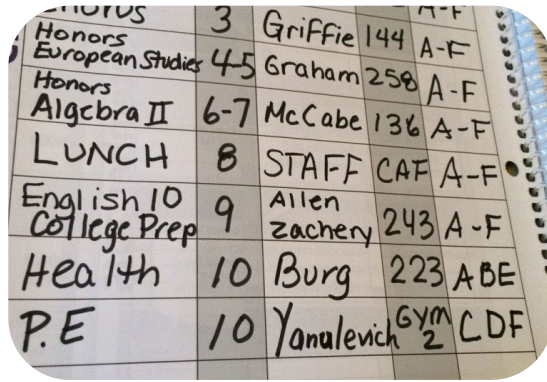 Chorus 3 Griffie 144 A-F
Honors
European Studies 45 Graham 258 A-F
Honors
Algebra II 6-7 McCabe 136 A-F
LUNCH 8 STAFF CAF A-F
English 10 Allen
College Prep 9 Zachery 243 A-F
Health 10 Burg 223 ABE
P.E 10 Yanulevich Gym 2 CDF